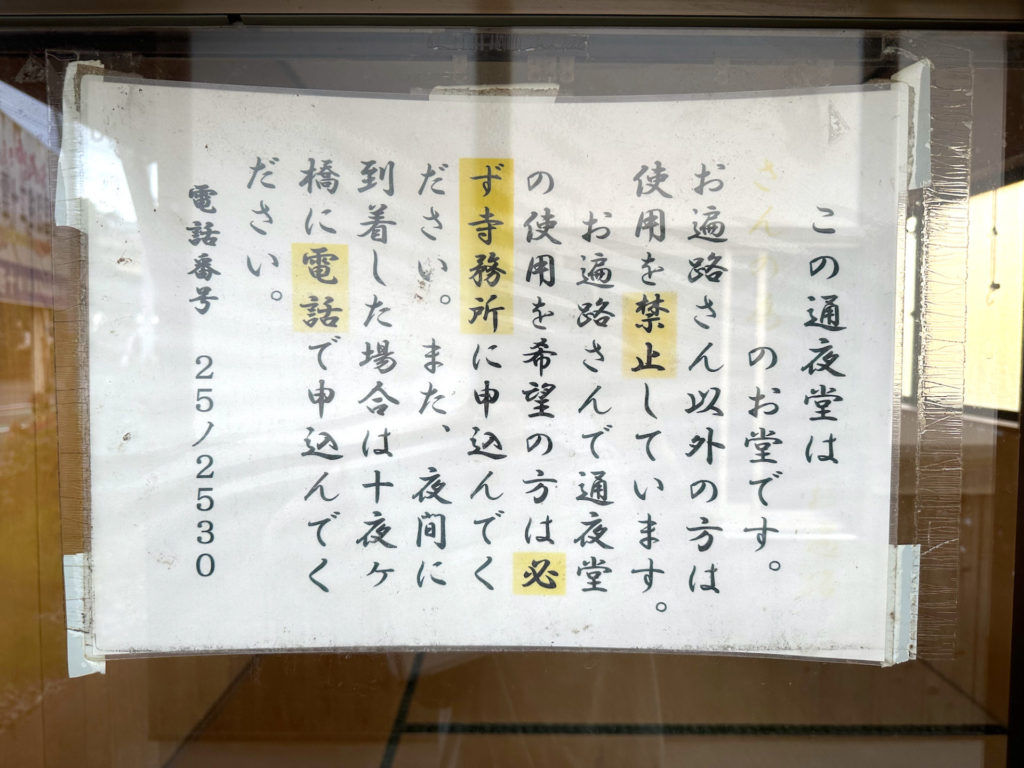 この通夜堂は
のお堂です。
お遍路さん以外の方は
使用を禁止しています。
お遍路さんで通夜堂
の使用を希望の方は必
ず寺務所に申込んでく
ださい。また、夜間に
到着した場合は十夜ヶ
橋に電話で申込んでく
ださい。
電話番号　25ノ2530